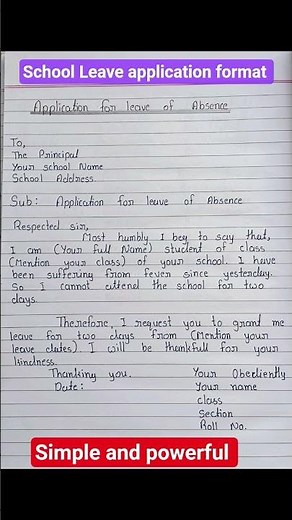 School Leave application format
Application for leave of Absence
To,
The Principal
Your school Name
School Address.
Sub: Application for leave of Absence
Respected sir,
Most humbly I beg to say that,
I am (Your Full Name) student of class
(Mention your class) of your school. I have
been suffering from fever since yesterday.
So I cannot attend the school for two
days.
Therefore, I request you to grant me
leave for two days from (Mention your
leave dates). I will be thankfull for your
kindness.
Thanking you. Your Obediently
Date: Your name
class
Section
Roll No.
Simple and powerful